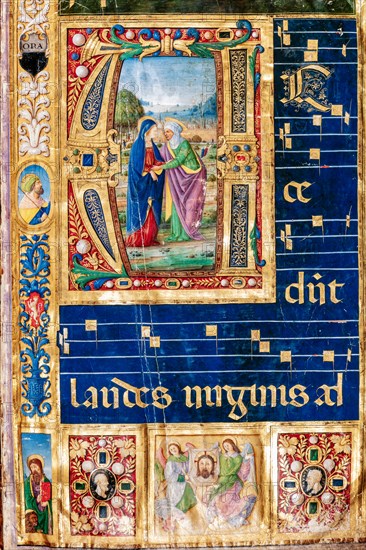 OPA
AC
ce
dūt
laudes virginis ad